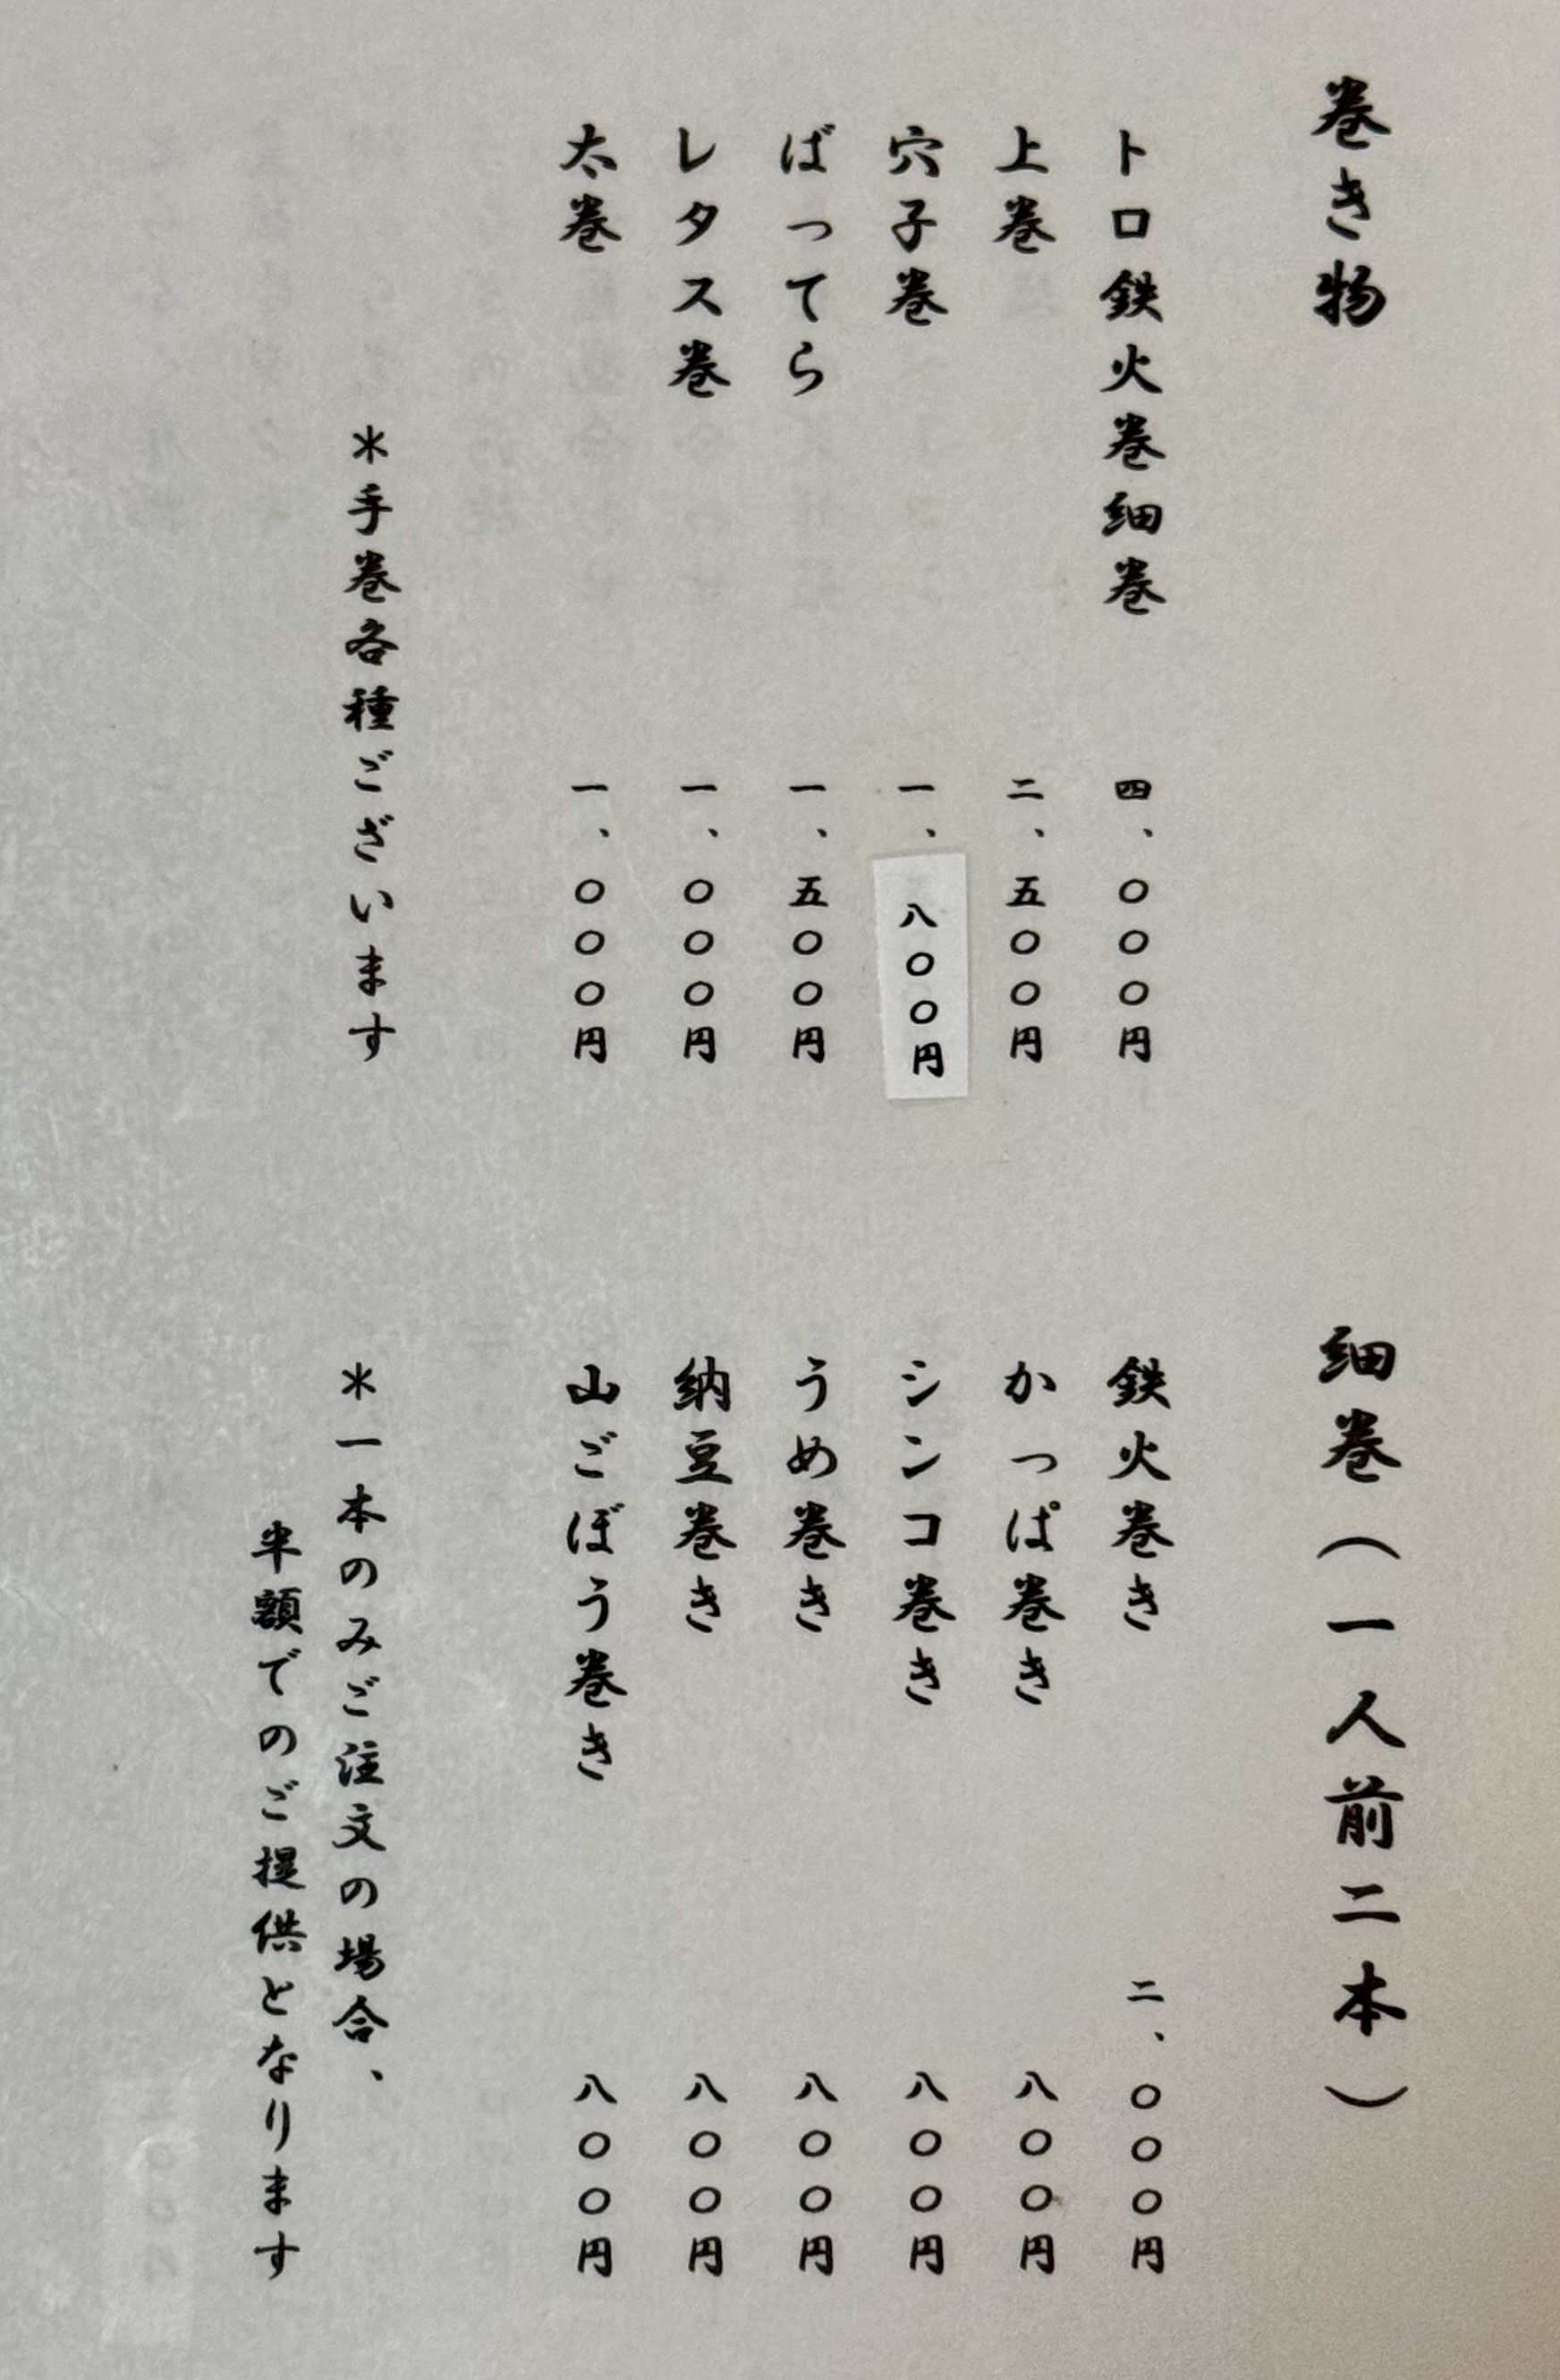 巻き物
トロ鉄火巻細巻 四、〇〇〇円
上巻 二、五〇〇円
穴子巻 一、八〇〇円
ばってら 一、五〇〇円
レタス巻 一、〇〇〇円
太巻 一、〇〇〇円
＊手巻各種ございます
細巻（一人前二本）
鉄火巻き 二、〇〇〇円
かっぱ巻き 八〇〇円
シンコ巻き 八〇〇円
うめ巻き 八〇〇円
納豆巻き 八〇〇円
山ごぼう巻き 八〇〇円
＊一本のみご注文の場合、
半額でのご提供となります